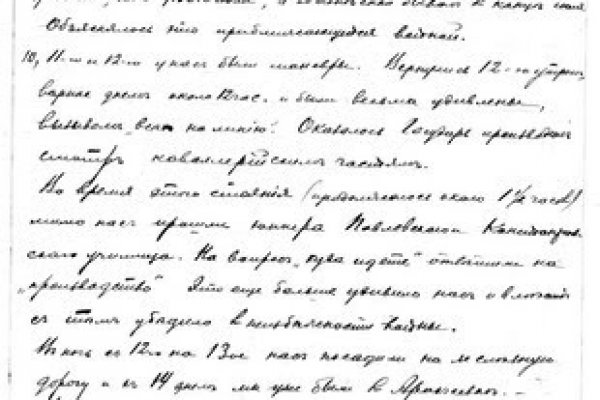 Объяснялось это приближающейся войной.
10, 11-го и 12-го у нас были маневры. Вернулись 12-го утром,
вернее днем около 12 час. и были весьма удивлены,
вызовом „всех на линию". Оказалось Государь производит
смотр кавалерийским частям.
Во время этого стояния (продолжалось около 1½ часов)
мимо нас прошли юнкера Павловского Константинов
ского училища. На вопрос „куда идете" ответили на
„производство" Это еще больше удивило нас и
с тем убедило в неизбежности войны.
В ночь с 12-го на 13-ое нас посадили на железную
дорогу и к 14 днем мы уже были в